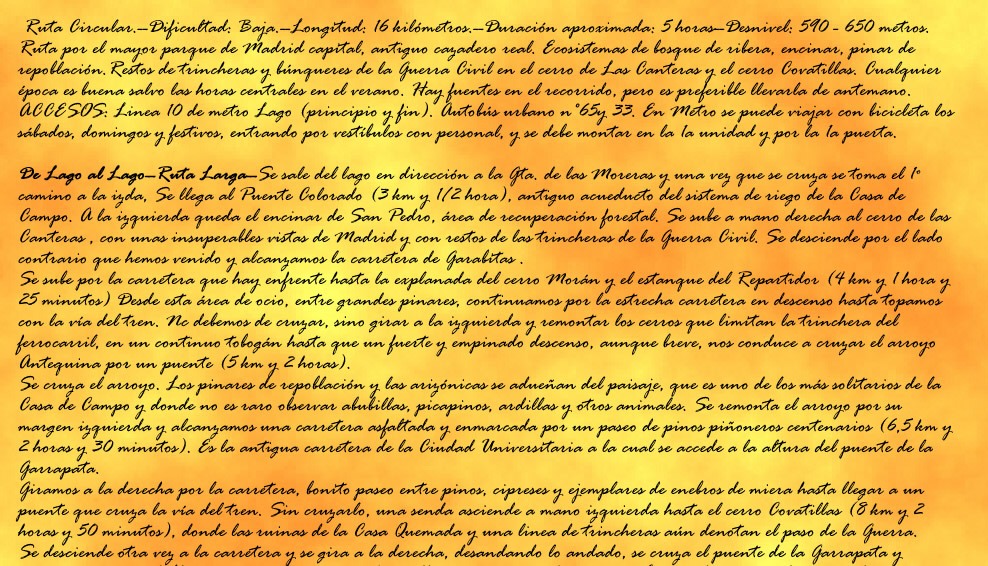 Ruta Circular.—Dificultad: Baja.—Longitud: 16 kilómetros.—Duración aproximada: 5 horas—Desnivel: 590 - 650 metros.
Ruta por el mayor parque de Madrid capital, antiguo cazadero real. Ecosistemas de bosque de ribera, encinar, pinar de
repoblación. Restos de trincheras y búnqueres de la Guerra Civil en el cerro de Las Canteras y el cerro Covatillas. Cualquier
época es buena salvo las horas centrales en el verano. Hay fuentes en el recorrido, pero es preferible llevarla de antemano.
ACCESOS: Linea 10 de metro Lago (principio y fin). Autobús urbano nº65y 33. En Metro se puede viajar con bicicleta los
sábados, domingos y festivos, entrando por vestíbulos con personal, y se debe montar en la 1a unidad y por la 1a puerta.
De Lago al Lago—Ruta Larga—Se sale del lago en dirección a la Gta. de las Moreras y una vez que se cruza se toma el 1º
camino a la izda, Se llega al Puente Colorado (3 km y 1/2 hora), antiguo acueducto del sistema de riego de la Casa de
Campo. A la izquierda queda el encinar de San Pedro, área de recuperación forestal. Se sube a mano derecha al cerro de las
Canteras , con unas insuperables vistas de Madrid y con restos de las trincheras de la Guerra Civil. Se desciende por el lado
contrario que hemos venido y alcanzamos la carretera de Garabitas .
Se sube por la carretera que hay enfrente hasta la explanada del cerro Morán y el estanque del Repartidor (4 km y 1 hora y
25 minutos) Desde esta área de ocio, entre grandes pinares, continuamos por la estrecha carretera en descenso hasta topamos
con la vía del tren. Nc debemos de cruzar, sino girar a la izquierda y remontar los cerros que limitan la trinchera del
ferrocarril, en un continuo tobogán hasta que un fuerte y empinado descenso, aunque breve, nos conduce a cruzar el arroyo
Antequina por un puente (5 km y 2 horas).
Se cruza el arroyo. Los pinares de repoblación y las arizónicas se adueñan del paisaje, que es uno de los más solitarios de la
Casa de Campo y donde no es raro observar abubillas, picapinos, ardillas y otros animales. Se remonta el arroyo por su
margen izquierda y alcanzamos una carretera asfaltada y enmarcada por un paseo de pinos piñoneros centenarios (6,5 km y
2 horas y 30 minutos). Es la antigua carretera de la Ciudad Universitaria a la cual se accede a la altura del puente de la
Garrapata.
Giramos a la derecha por la carretera, bonito paseo entre pinos, cipreses y ejemplares de enebros de miera hasta llegar a un
puente que cruza la vía del tren. Sin cruzarlo, una senda asciende a mano izquierda hasta el cerro Covatillas (8 km y 2
horas y 50 minutos), donde las ruinas de la Casa Quemada y una linea de trincheras aún denotan el paso de la Guerra.
Se desciende otra vez a la carretera y se gira a la derecha, desandando lo andado, se cruza el puente de la Garrapata y